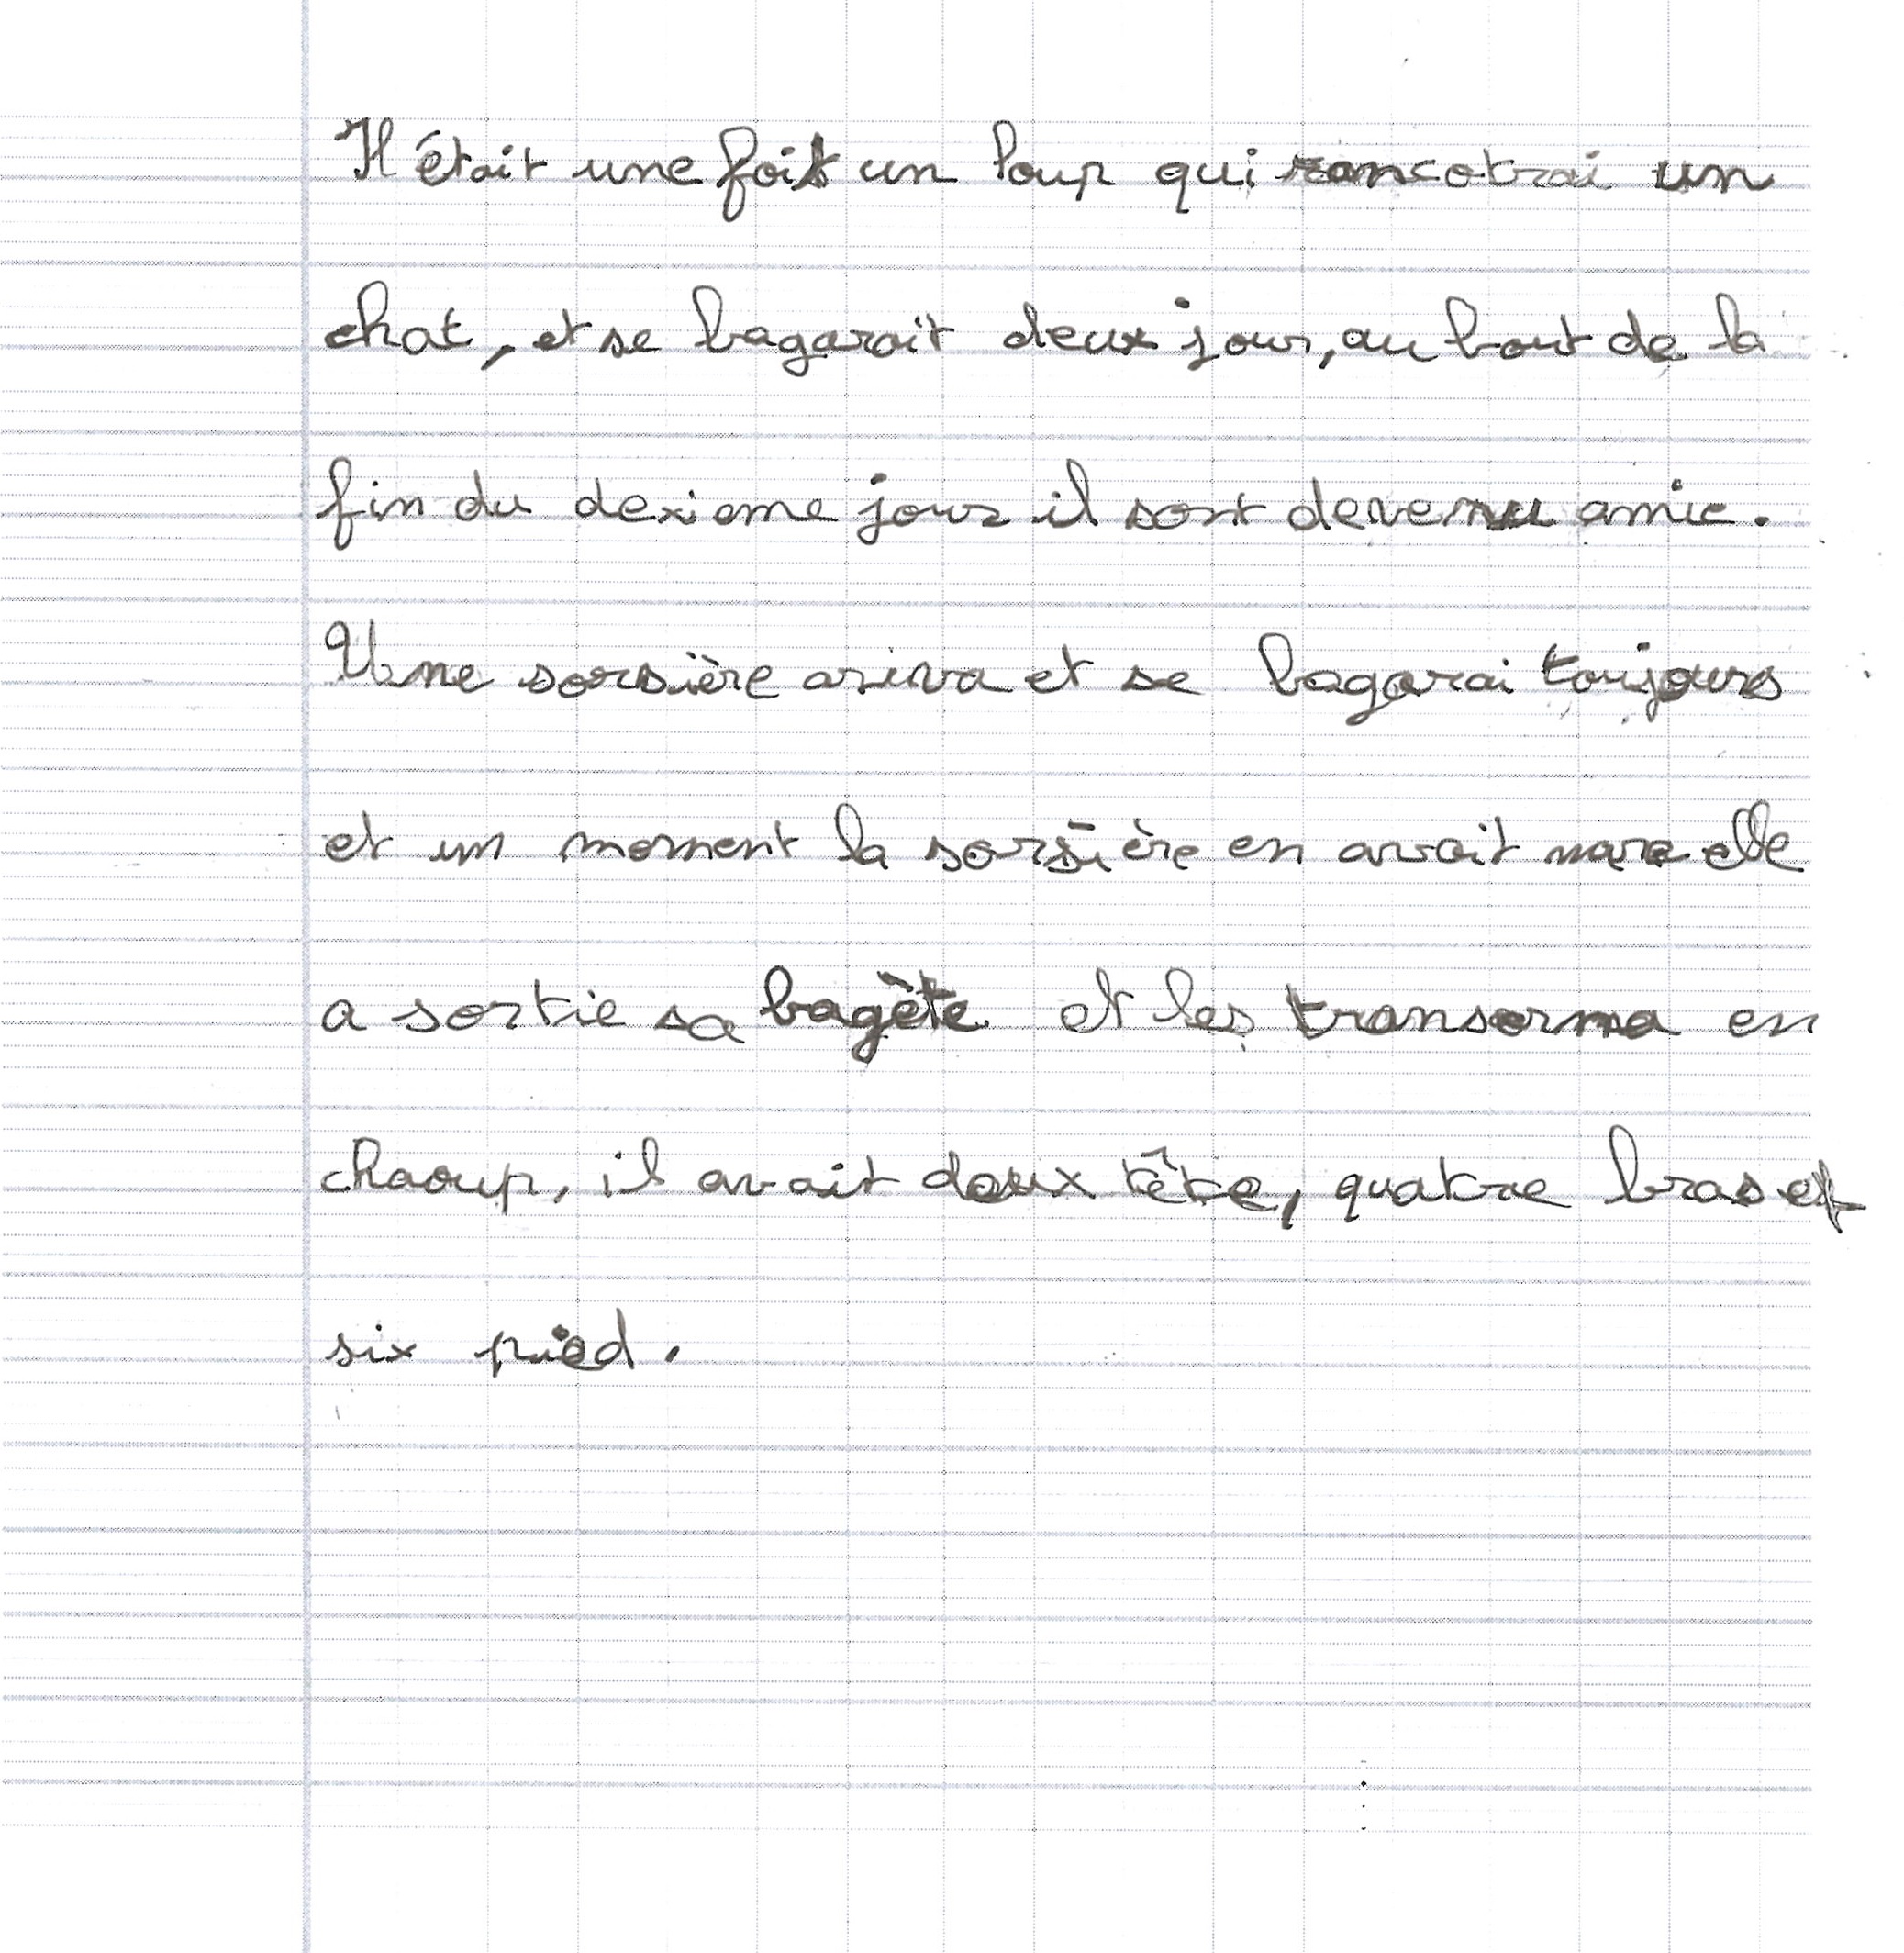 Il était une fois un loup qui rancotrai un
chat, et se bagarait deux jour, au bout de la
fin du dexieme jour il sont devenu amie.
Une sorsière ariva et se bagarai toujours
et un moment la sorsière en avait mare elle
a sortie sa bagète et les transorma en
chaoup, il avait deux tête, quatre bras et
six pied.